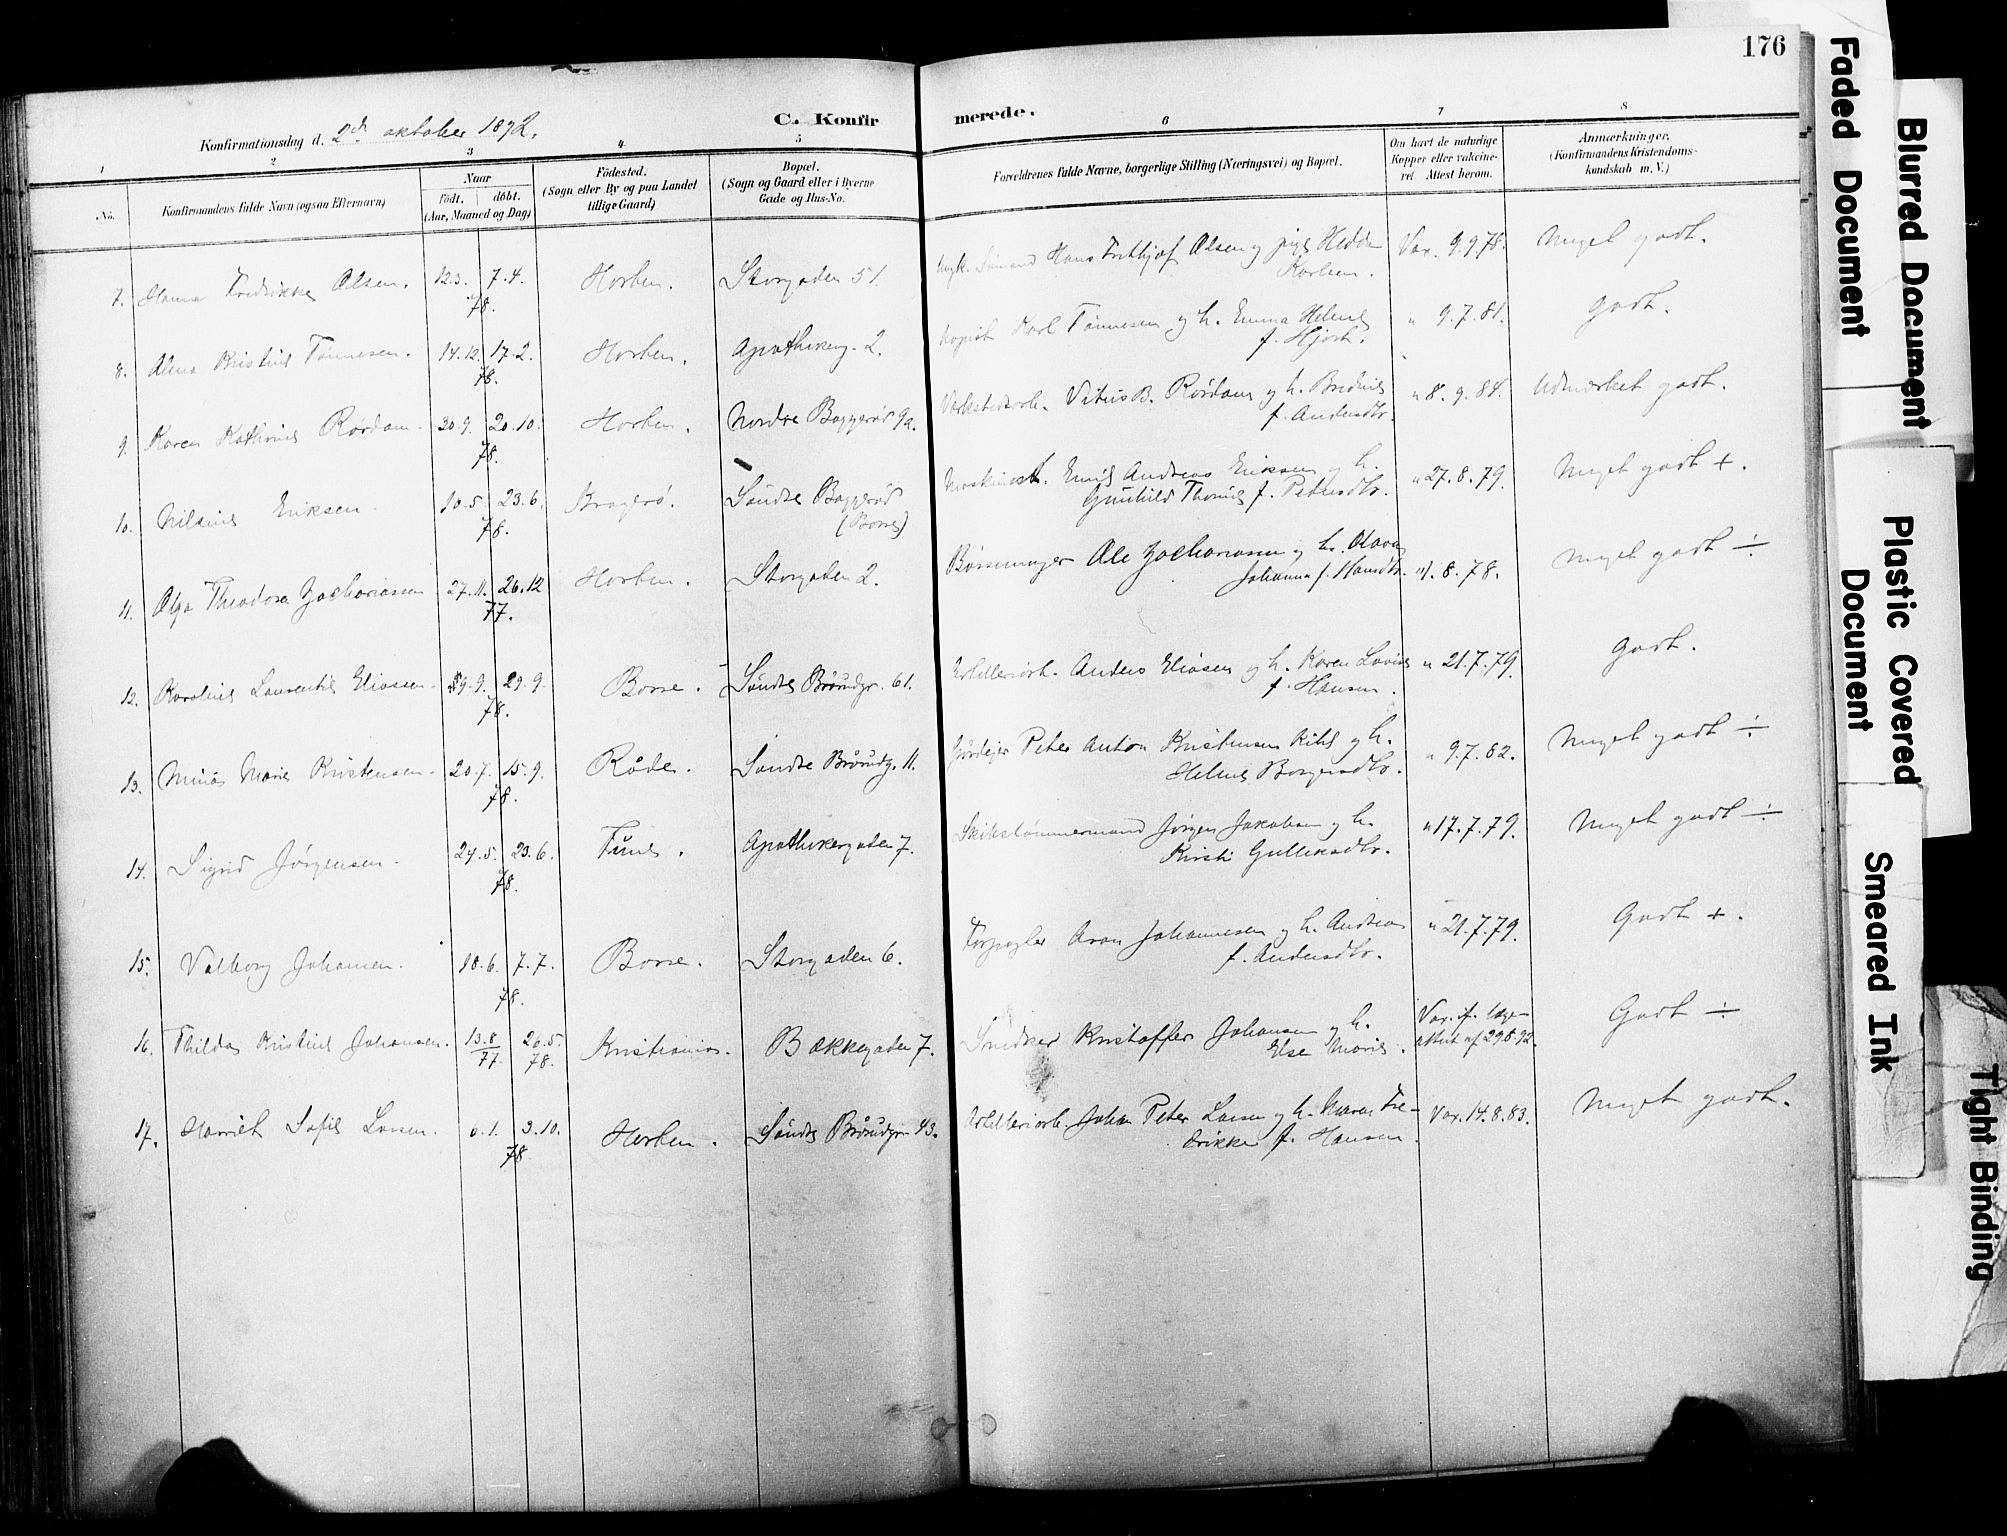 176
Konfirmationsdag d. 2den oktober 1892.
C. Konfirmerede.
1 2 3 4 5 6 7 8
No.
Konfirmandens fulde Navn (ogsaa Efternavn)
Naar
Født. døbt.
(Aar, Maaned og Dag)
Födested.
(Sogn eller By og paa Landet
tillige Gaard)
Bopæl.
(Sogn og Gaard eller i Byerne
Gade og Hus-No.
Forældrenes fulde Navne, borgerlige Stilling (Næringsvei) og Bopæl.
Om havt de naturlige
Kopper eller vakcine-
ret Attest herom.
Anmærkninger.
(Konfirmandens Kristendoms-
kundskab m. V.)
7. Hanna Fredrikke Olsen. 12.3. 7.4. 78. Horten. Storgaden 51. Hans Frithjof Olsen og pige Hedda Karlsen. Vax. 9.9.78. Meget godt.
8. Alma Kristine Tønnesen. 14.12. 17.2. 78. Horten. Apothekerg. 2. Karl Tønnesen og h. Emma Helene f. Hjort. " 9.7.81. Godt.
9. Karen Kathrine Rørdam. 30.9. 20.10. 78. Horten. Nordre Baggerød 9a. Værkstedsarb. Vitus B. Rørdam og h. Bredine f. Andersdtr. " 8.9.84. Udmærket godt.
10. Nilsine Eriksen. 10.5. 23.6. 78. Bragerø. Søndre Baggerød (Borre) Maskinist. Emil Andreas Eriksen og h. Gunhild Thomine f. Petersdtr. " 27.8.79. Meget godt +.
11. Olga Theodora Zachariassen 27.11. 26.12 77. Horten. Storgaden 2. Bøssemager Ole Zachariassen og h. Olava Johanna f. Hansdtr. " 1.8.78. Meget godt ÷.
12. Karoline Laurentie Eliassen. 9.9. 29.9. 78. Borre. Søndre Brårudgr. 61. Artilleriarb. Anders Eliasen og h. Karen Lovise f. Hansen. " 21.7.79. Godt.
13. Mina Marie Kristensen. 20.7. 15.9. 78. Råde. Søndre Brårudg. 11. Gårdejer Peter Anton Kristensen og h. Helene Borgersdtr. " 9.7.82. Meget godt ÷
14. Sigrid Jørgensen. 24.5. 23.6. 78. Tune. Apothekergaden 7. Skibstømmermand Jørgen Jakobsen og h. Kirsti Gulliksdtr. " 17.7.79. Meget godt ÷
15. Valborg Johansen. 18.6. 7.7. 78. Borre. Storgaden 6. Aron Johannesen og h. Andrea f. Andersdtr. " 21.7.79. Godt +.
16. Thilda Kristine Johansen. 13.8 77. 26.5. 78. Kristiania. Bakkegaden 7. Snedker Kristoffer Johansen og h. Else Marie. Vax. if. læge- attest af 29.8.92. Godt ÷
17. Harriet Sofie Larsen. 6.1. 3.10. 78 Horten. Søndre Brårudgr. 43. Artilleriarb. Johan Peter Larsen og h. Maren Fre- drikke f. Hansen. Vax. 14.8.83. Meget godt.
Faded Document
Blurred Document
Plastic Covered
Document
Smeared Ink
Tight Binding